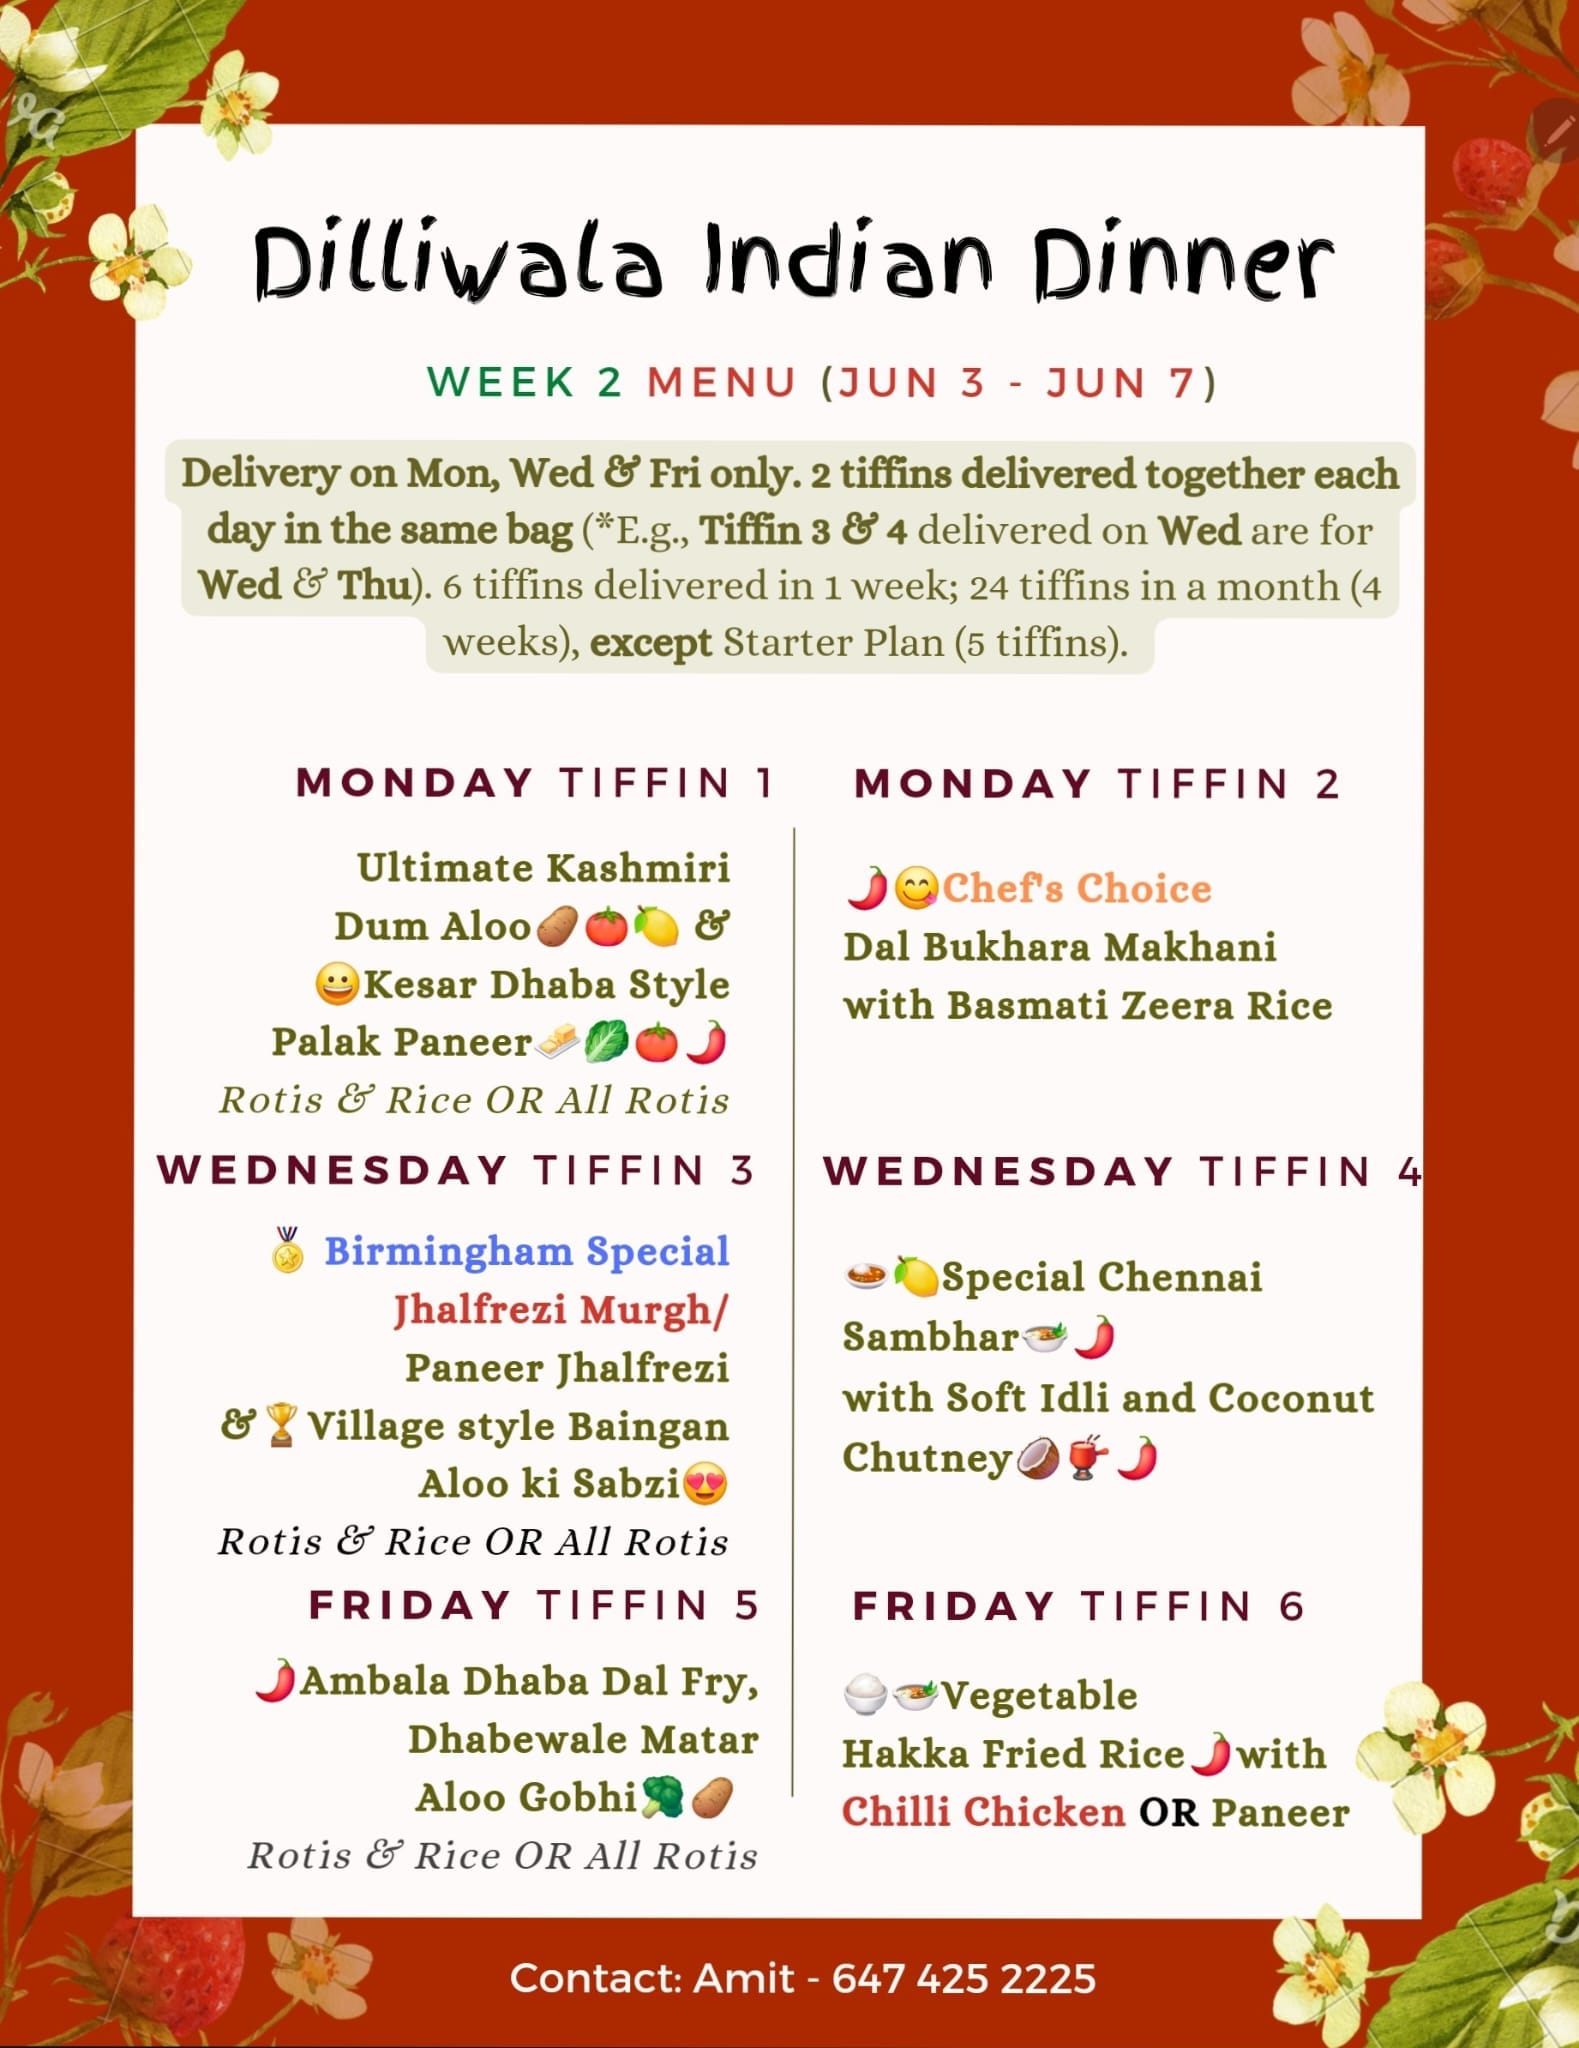 Dilliwala Indian Dinner
WEEK 2 MENU (JUN 3 - JUN 7)
Delivery on Mon, Wed & Fri only. 2 tiffins delivered together each
day in the same bag (*E.g., Tiffin 3 & 4 delivered on Wed are for
Wed & Thu). 6 tiffins delivered in 1 week; 24 tiffins in a month (4
weeks), except Starter Plan (5 tiffins).
MONDAY TIFFIN 1
Ultimate Kashmiri
Dum Aloo🥔🍅🍋 &
😀Kesar Dhaba Style
Palak Paneer🧈🥬🍅🌶️
Rotis & Rice OR All Rotis
MONDAY TIFFIN 2
🌶️😋Chef's Choice
Dal Bukhara Makhani
with Basmati Zeera Rice
WEDNESDAY TIFFIN 3
🏅 Birmingham Special
Jhalfrezi Murgh/
Paneer Jhalfrezi
&🏆Village style Baingan
Aloo ki Sabzi😍
Rotis & Rice OR All Rotis
WEDNESDAY TIFFIN 4
🍛🍋Special Chennai
Sambhar🍲🌶️
with Soft Idli and Coconut
Chutney🥥🫕🌶️
FRIDAY TIFFIN 5
🌶️Ambala Dhaba Dal Fry,
Dhabewale Matar
Aloo Gobhi🥦🥔
Rotis & Rice OR All Rotis
FRIDAY TIFFIN 6
🍚🍲Vegetable
Hakka Fried Rice🌶️with
Chilli Chicken OR Paneer
Contact: Amit - 647 425 2225